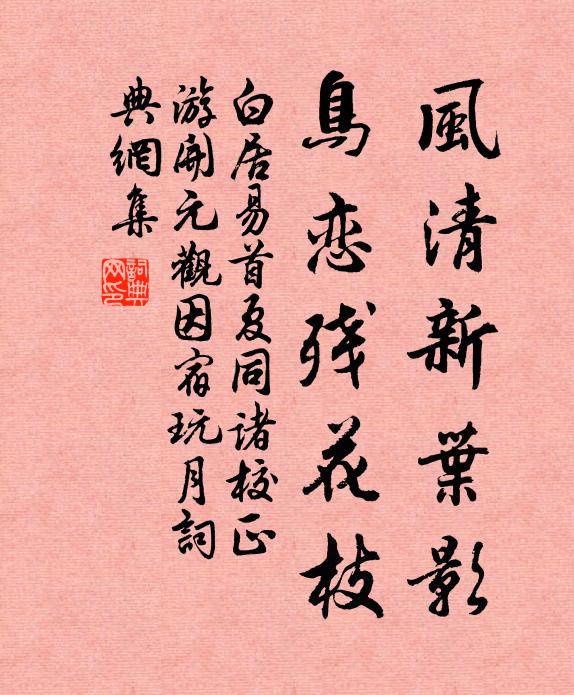 風清新葉影
鳥恋残花枝
白居易首夏同諸校正
游開元觀因宿玩月詞
典網集
詞典網印